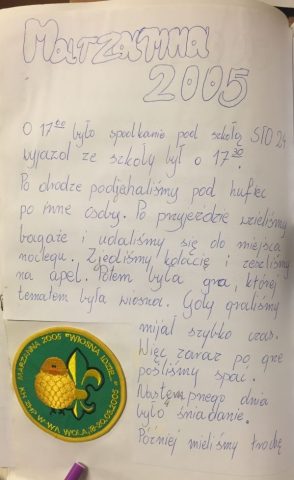 Marzanna
2005
O 17⁰⁰ było spotkanie pod szkołą STO 24
wyjazd ze szkoły był o 17³⁰.
Po drodze podjehaliśmy pod hufiec
po inne osoby. Po przyjeździe wzieliśmy
bagaże i udaliśmy się do miejsca
noclegu. Zjedliśmy kolację i zeszliśmy
na apel. Potem była gra, której
tematem była wiosna. Gdy graliśmy
mijał szybko czas.
Więc zaraz po grze
poszliśmy spać.
Następnego dnia
było śniadanie.
Później mieliśmy trochę
MARZANNA 2005 "WIOSNA IDZIE"
ZHP W-WA WOLA, 18-20.03.2005